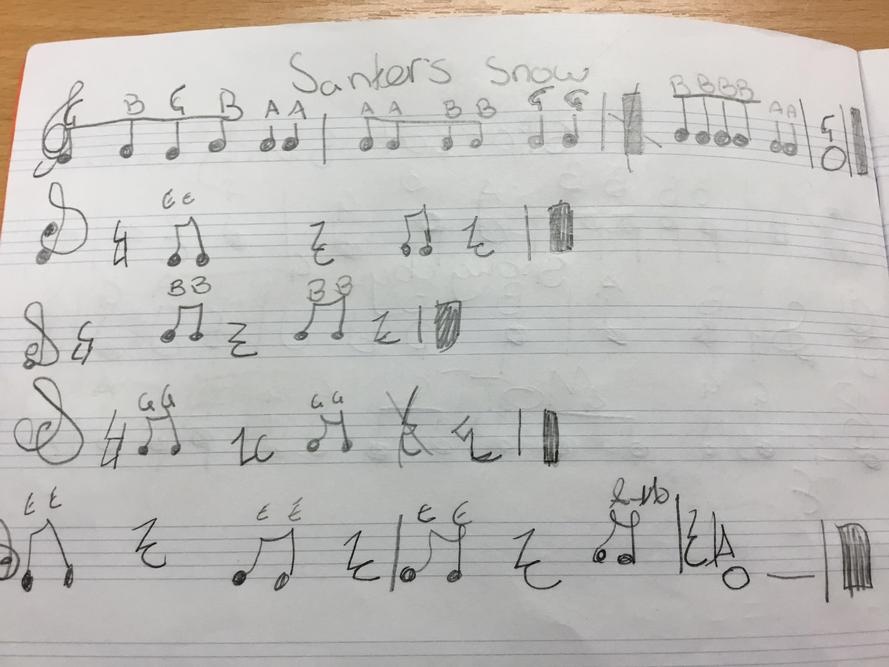 Santers Snow
G B G B A A A A B B G G B B B B A A G
E E
B B B B
G G G G
E E E E E E A